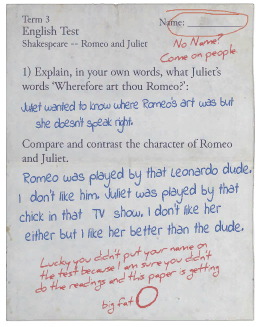 Term 3
Name:
English Test
Shakespeare -- Romeo and Juliet
No Name?
Come on people
1) Explain, in your own words, what Juliet's
words 'Wherefore art thou Romeo?':
Juliet wanted to know where Romeo's art was but
she doesn't speak right.
Compare and contrast the character of Romeo
and Juliet.
Romeo was played by that Leonardo dude.
I don't like him. Juliet was played by that
chick in that TV show. I don't like her
either but I like her better than the dude.
Lucky you didn't put your name on
the test because I am sure you didn't
do the readings and this paper is getting
big fat O